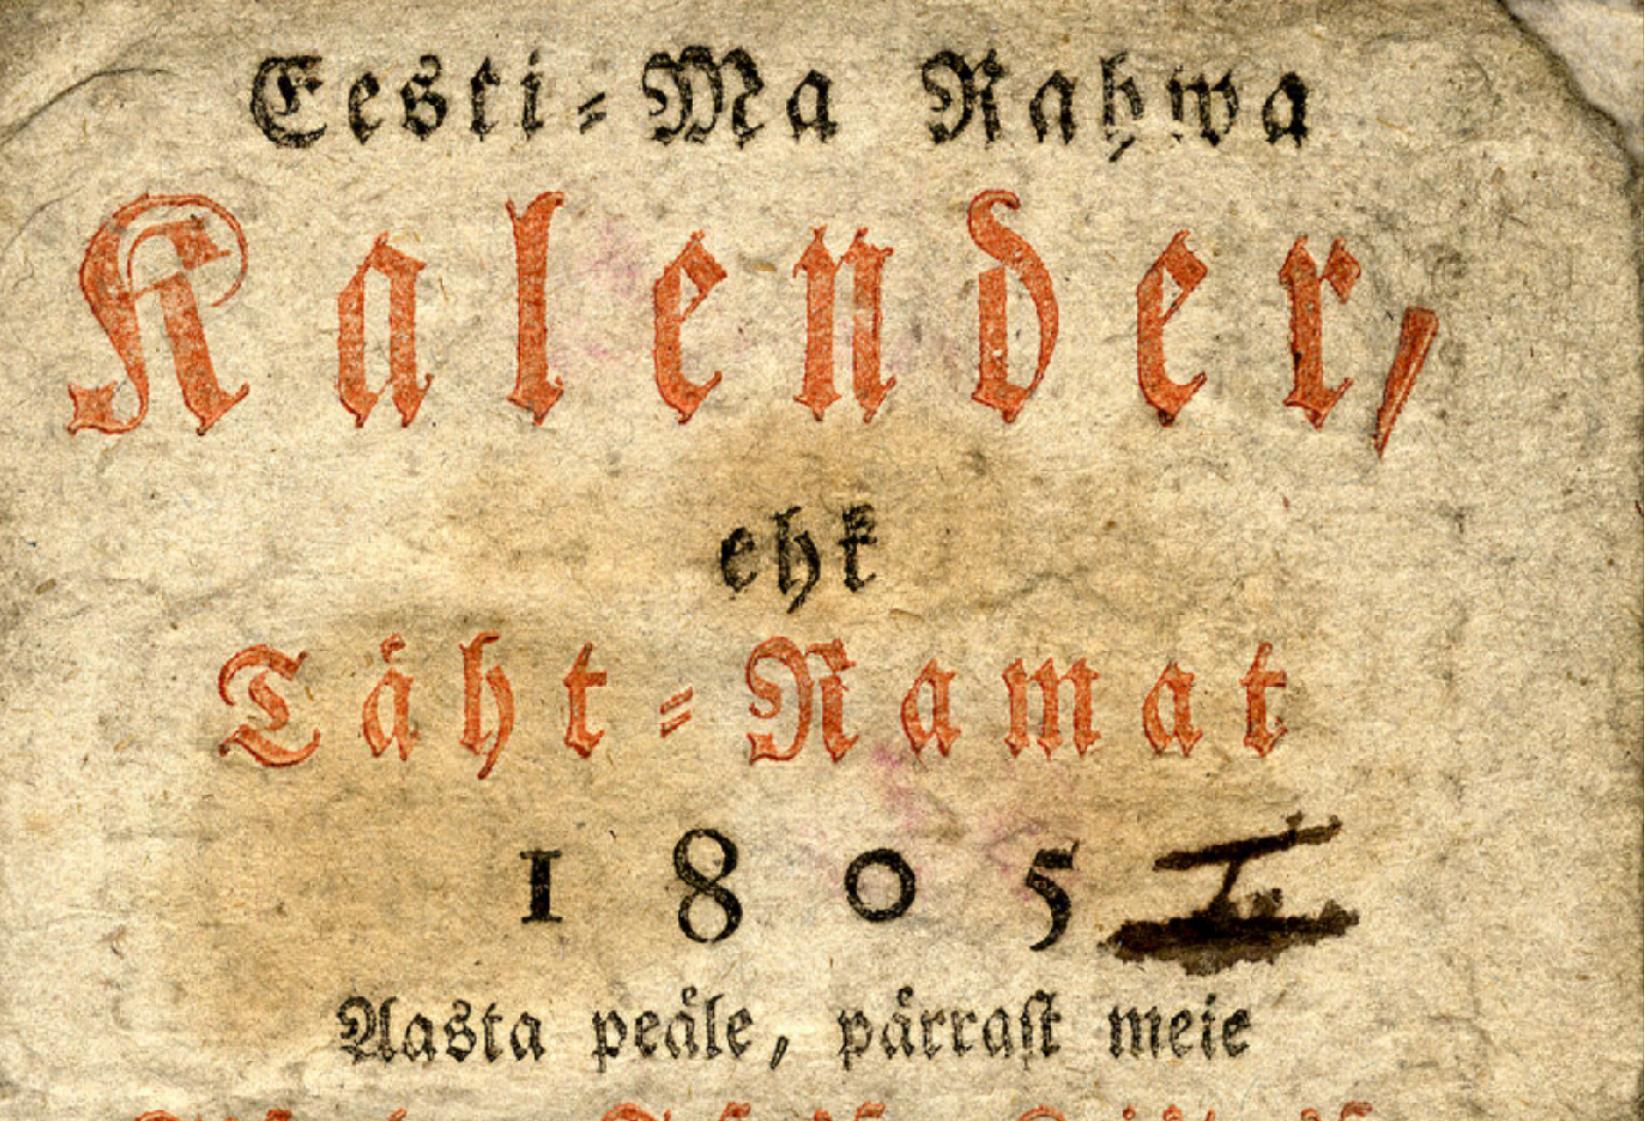 Eesti-Ma Rahwa
Kalender,
ehk
Täht-Ramat
1805
Aasta peäle, pärrast meie